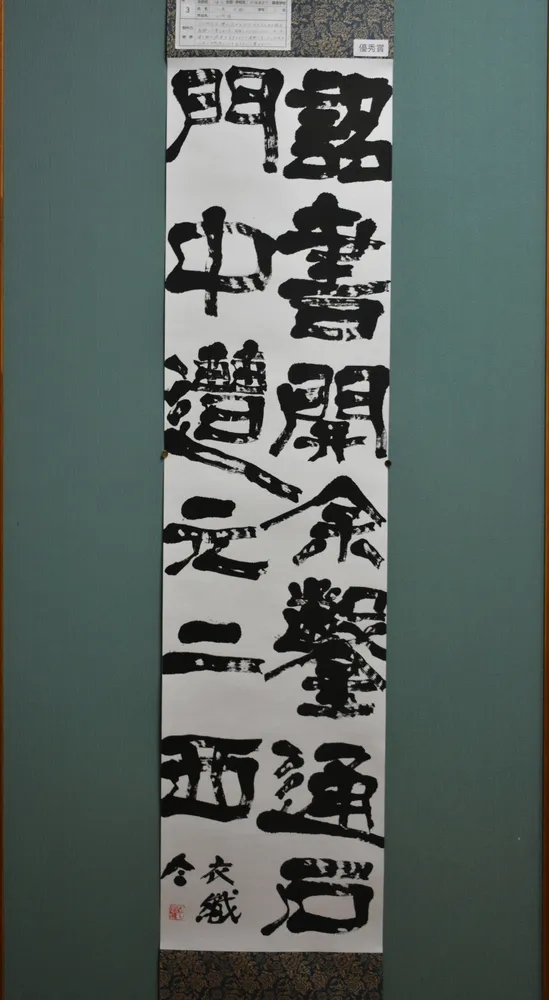 3
優秀賞
詔書開余鑿通石
門中遭元二西
衣織